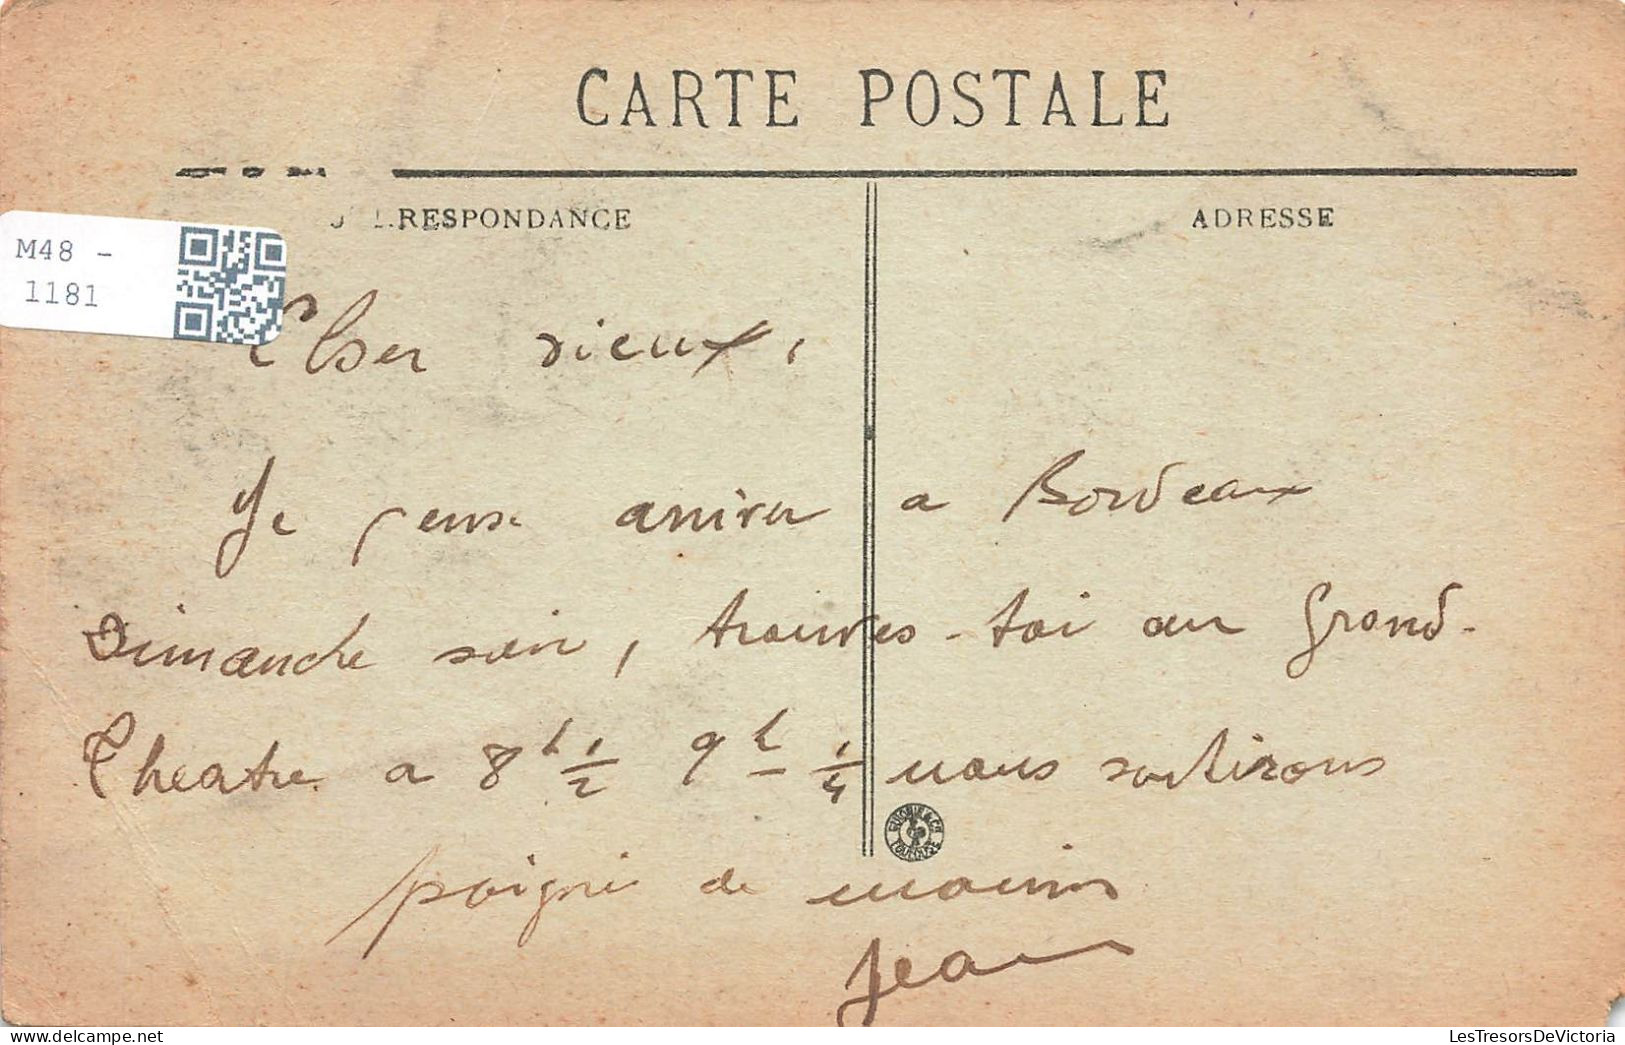 CARTE POSTALE
RRESPONDANCE
ADRESSE
M48 -
1181
Cher vieux,
Je pense arriver a Bordeaux
Dimanche soir, trouves-toi au Grand-
Theatre a 8h 1/2 9h 1/4 nous sortirons
poigné de mains
Jean
LesTresorsDeVictoria